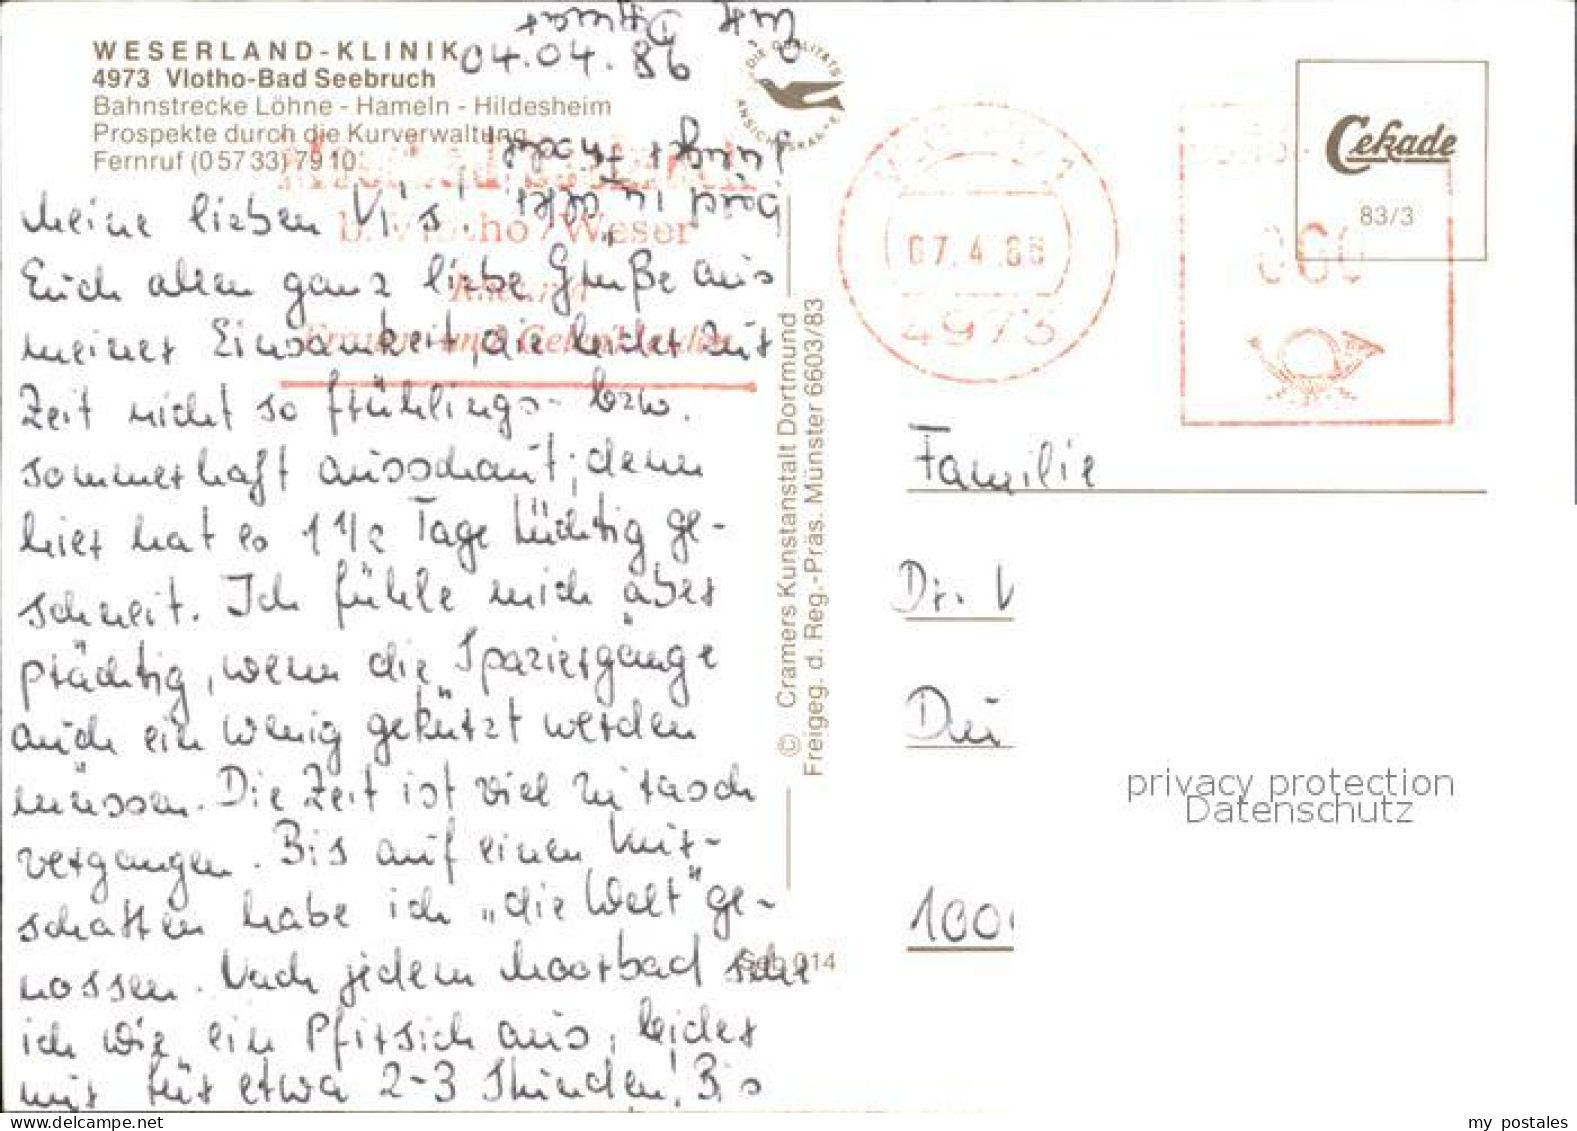 WESERLAND-KLINIK
4973 Vlotho-Bad Seebruch
Bahnstrecke Löhne - Hameln - Hildesheim
Prospekte durch die Kurverwaltung
Fernruf (05733) 7910
04.04.86
Meine lieben Vi's!
Euch allen ganz liebe Grüße aus
meiner Einsamkeit, die leider zur
Zeit nicht so frühlings- bzw.
sommerhaft ausschaut; denn
hier hat es 1 1/2 Tage tüchtig ge-
schneit. Ich fühle mich aber
prächtig, wenn die Spaziergänge
auch ein wenig gekürzt werden
müssen. Die Zeit ist viel zu rasch
vergangen. Bis auf einen Mit-
schatten habe ich „die Welt" ge-
nossen. Nach jedem Moorbad sehe
ich wie ein Pfirsich aus, leider
nur für etwa 2-3 Stunden! Bis
bald in alter
b. Vlotho / Weser
DIE QUALITÄTS
ANSICHTSKARTE
© Cramers Kunstanstalt Dortmund
Freigeg. d. Reg.-Präs. Münster 6603/83
Seb 014
07.4.86
4973
060
Cekade
83/3
Familie
Dr. V
100
privacy protection
Datenschutz
my postales